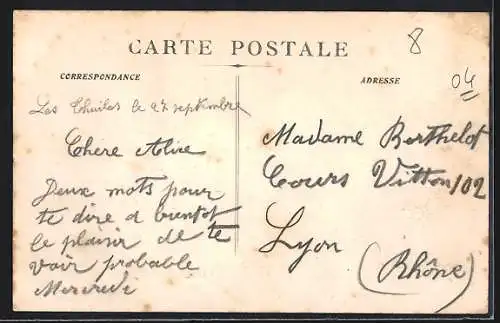 CARTE POSTALE
8
CORRESPONDANCE
ADRESSE
04
Les le 27 septembre
Chère Alice
Deux mots pour
te dire a bientot
le plaisir de te
voir probable
Mercredi
Madame Berthelot
Cours Vitton 102
Lyon
(Rhône)